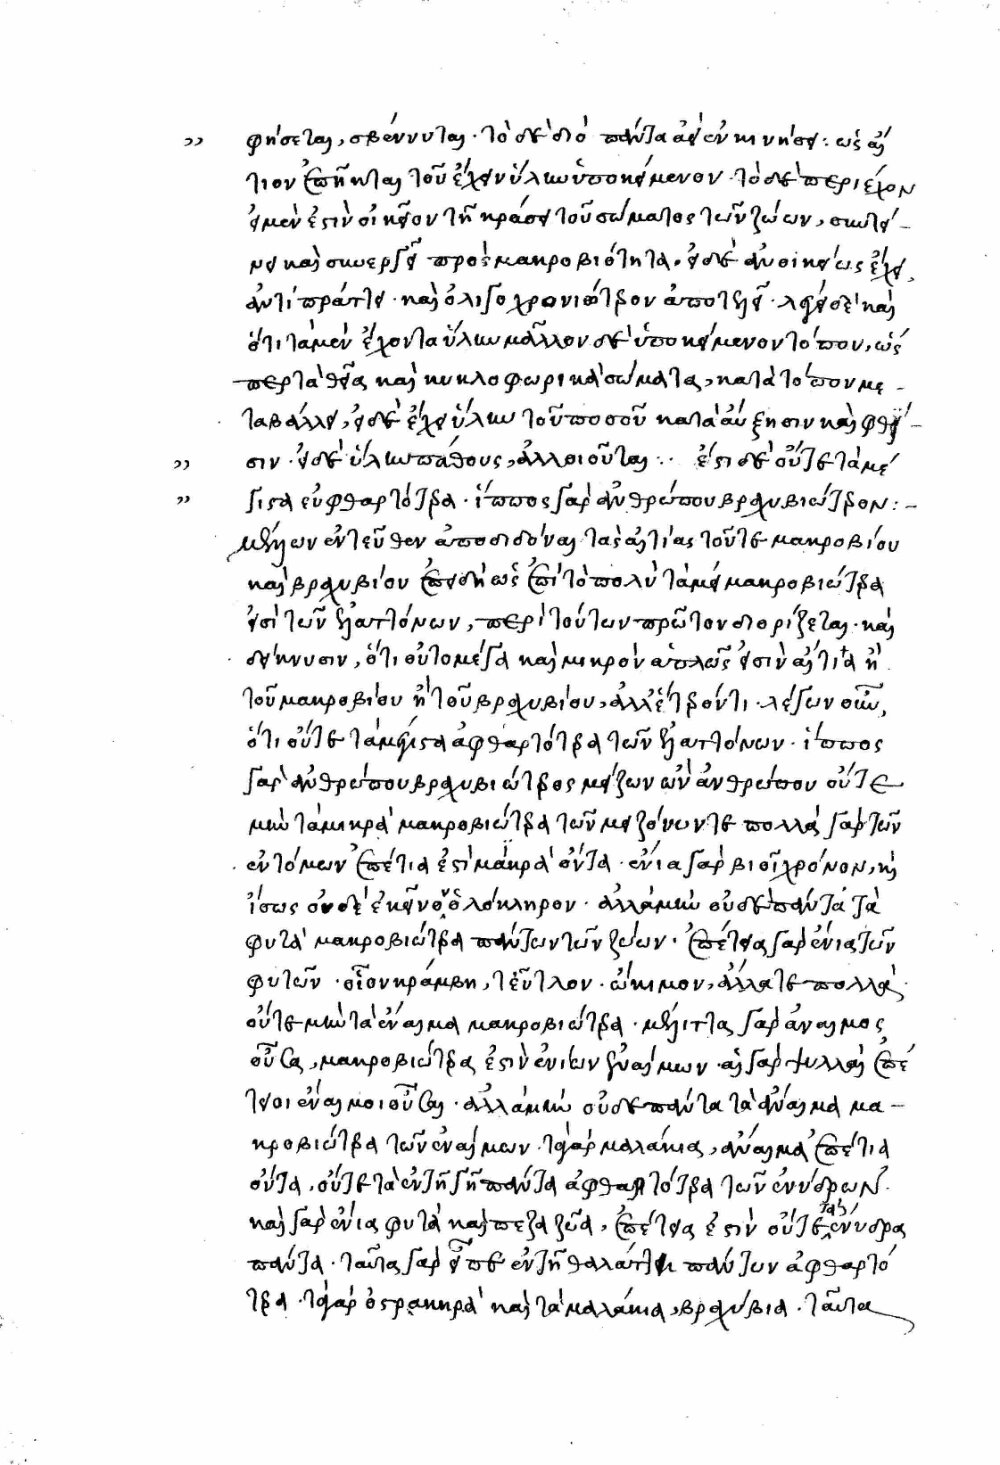 φήσεται, σβέννυται· τὸ δὲ διὸ πάντα ἀεὶ ἐν κινήσει: ὡς αἴ
τιον ἐπῆκται τοῦ ἔχειν ὕλην ὑποκείμενον· τὸ δὲ περιέχον
εἰ μέν ἐστιν οἰκεῖον τῇ κράσει τοῦ σώματος τῶν ζώων, συντεί-
νει καὶ συνεργεῖ πρὸς μακροβιότητα. εἰ δὲ ἀνοικείως ἔχει,
ἀντιπράττει· καὶ ὀλιγοχρονιώτερον ἀποτελεῖ· λέγει δὲ καὶ
ὅτι τὰ μὲν ἔχοντα ὕλην μᾶλλον δὲ ὑποκείμενον τόπου, ὥς
περ τὰ θεῖα καὶ κυκλοφορικὰ σώματα, κατὰ τόπον με-
ταβάλλει, εἰ δὲ ἔχει ὕλην τοῦ ποσοῦ κατὰ αὔξησιν καὶ φθί-
σιν· εἰ δὲ ὕλην πάθους, ἀλλοιοῦται: ἔστι δὲ οὔτε τὰ μέ
γιστα ἀφθαρτότερα· ἵππος γὰρ ἀνθρώπου βραχυβιώτερον:-
μέλλων ἐντεῦθεν ἀποδιδόναι τὰς αἰτίας τοῦ τε μακροβίου
καὶ βραχυβίου ἐπειδὴ ὡς ἐπὶ τὸ πολὺ τὰ μείζω μακροβιώτερα
εἰσὶ τῶν ἐλαττόνων, περὶ τούτων πρῶτον διορίζεται· καὶ
δείκνυσιν, ὅτι οὐ τὸ μέγα καὶ μικρὸν ἁπλῶς εἰσὶν αἴτια ἢ
τοῦ μακροβίου ἢ τοῦ βραχυβίου, ἀλλ' ἕτερόν τι· λέγων οὖν,
ὅτι οὔτε τὰ μέγιστα ἀφθαρτότερα τῶν ἐλαττόνων· ἵππος
γὰρ ἀνθρώπου βραχυβιώτερος μείζων ὢν ἀνθρώπου οὔτε
μὴν τὰ μικρὰ μακροβιώτερα τῶν μειζόνων τε πολλὰ γὰρ τῶν
ἐντόμων ἐπέτια ἐστὶ μακρὰ ὄντα· ἔνια γὰρ βιοῖ χρόνον, καὶ
ἴσως οὐδὲ ἐκεῖνον ὁλόκληρον· ἀλλὰ μὴν οὐδὲ πάντα τὰ
φυτὰ μακροβιώτερα πάντων τῶν ζώων· ἐπέτεια γὰρ ἔνια τῶν
φυτῶν· οἷον κράμβη, τεῦτλον· ὤκιμον, ἄλλα τε πολλά·
οὔτε μὴν τὰ ἔναιμα μακροβιώτερα· μέλιττα γὰρ ἄναιμος
οὖσα, μακροβιώτερα ἐστὶν ἐνίων ἐναίμων· αἱ γὰρ ψύλλαι ἐπέ
τειοι ἔναιμοι οὖσαι· ἀλλὰ μὴν οὐδὲ πάντα τὰ ἄναιμα μα-
κροβιώτερα τῶν ἐναίμων· τὰ γὰρ μαλάκια, ἄναιμα ἐπέτια
ὄντα, οὔτε τὰ ἐν τῇ γῇ πάντα ἀφθαρτότερα τῶν ἐνύδρων·
καὶ γὰρ ἔνια φυτὰ καὶ πεζὰ ζῶα, ἐπέτεια ἐστὶν οὔτε τὰ ἔνυδρα
πάντα· ταῦτα γὰρ εἶπε ἐν τῇ θαλάττῃ πάντων ἀφθαρτό
τερα· τὰ γὰρ ὀστρακηρὰ καὶ τὰ μαλάκια, βραχύβια· ταῦτα